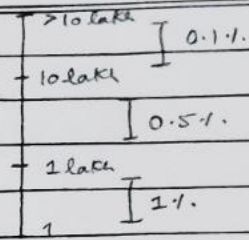 >10 lakh
0.1%.
10 lakh
0.5%.
1 lakh
1%.
1